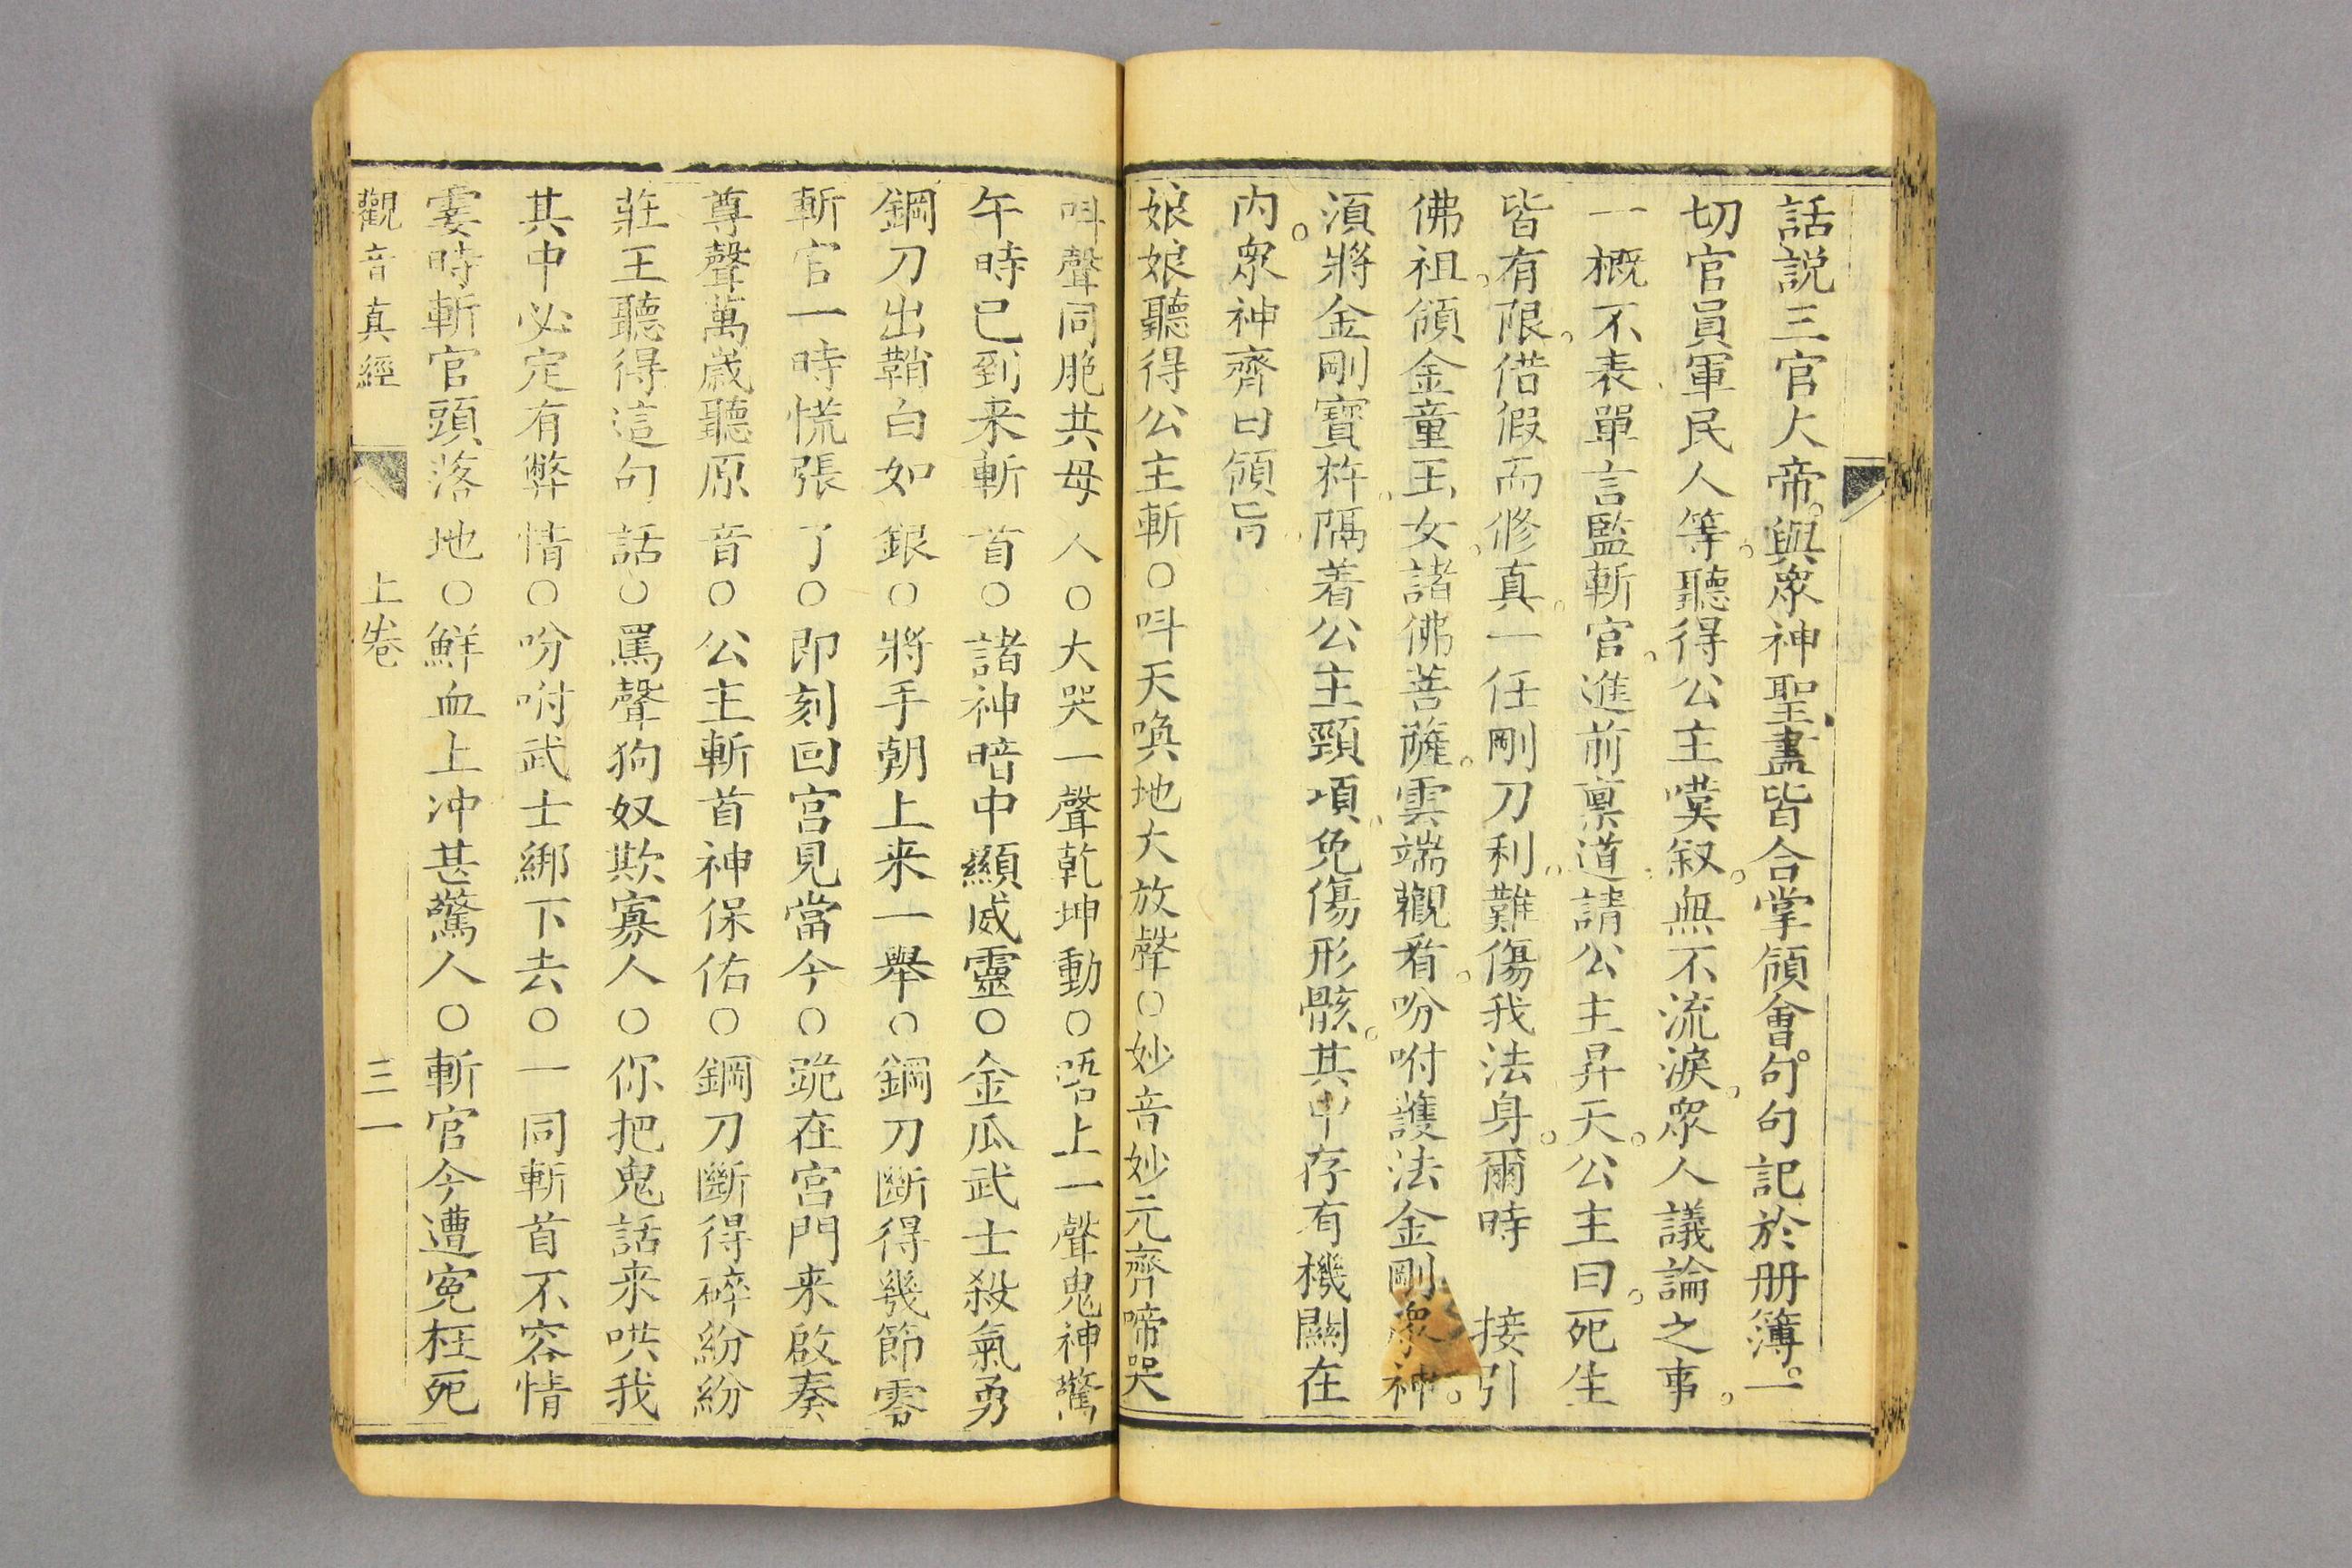 話説三官大帝。與眾神聖、盡皆合掌領會。句句記於册簿。一
切官員軍民人等。聽得公主嘆叙。無不流淚。眾人議論之事。
一概不表、單言監斬官。進前禀道、請公主昇天。公主曰。死生
皆有限。借假而修真。一任剛刀利。難傷我法身。爾時　接引
佛祖。領金童玉女。諸佛菩薩。雲端觀看。吩咐護法金剛眾神。
須將金剛寳杵。隔着公主頸項。免傷形骸。其中存有機關在
內。眾神齊曰領旨
娘娘聽得公主斬○呌天喚地大放聲○妙音妙元齊啼哭
呌聲同胞共母人○大哭一聲乾坤動○唔上一聲鬼神驚
午時已到来斬首○諸神暗中顯威靈○金瓜武士殺氣勇
鋼刀出鞘白如銀○將手朝上来一舉○鋼刀斷得幾節零
斬官一時慌張了○即刻回宮見當今○跪在宮門来啟奏
尊聲萬歲聽原音○公主斬首神保佑○鋼刀斷得碎紛紛
莊王聽得這句話○罵聲狗奴欺寡人○你把鬼話来哄我
其中必定有弊情○吩咐武士綁下去○一同斬首不容情
霎時斬官頭落地○鮮血上冲甚驚人○斬官今遭寃枉死
觀音真經　上卷　三一